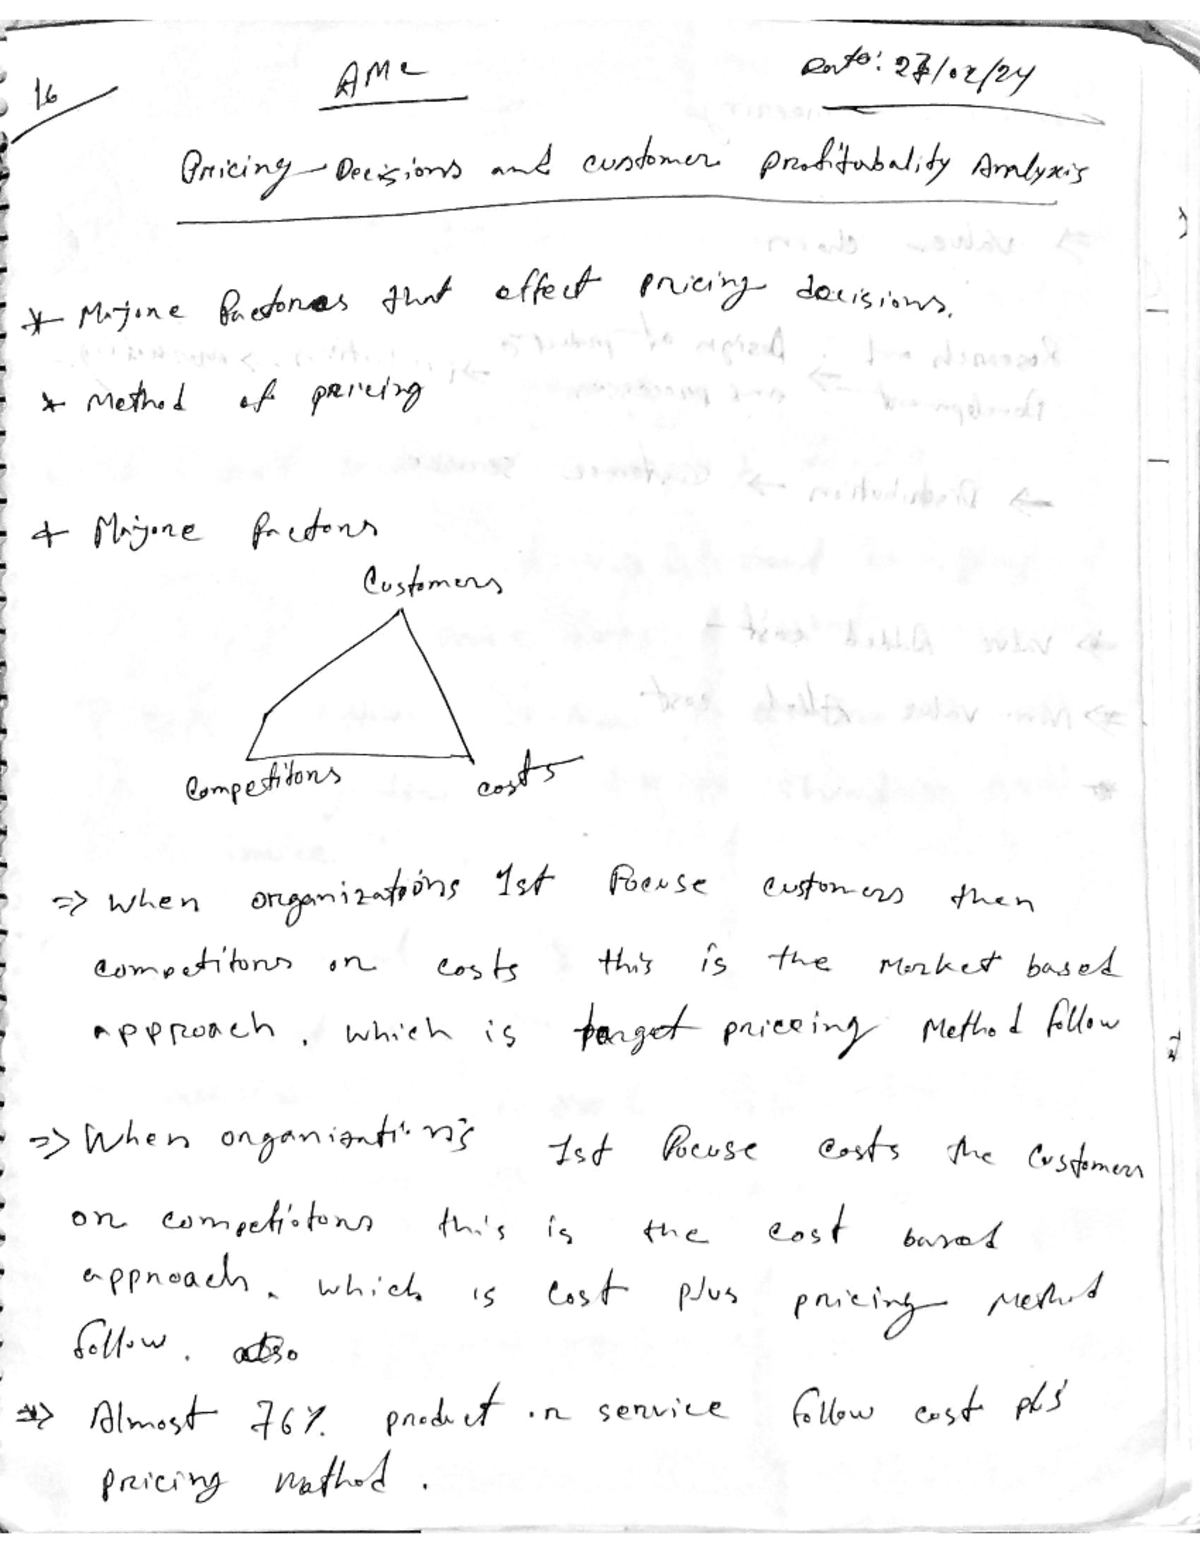 16
AMC
Date: 27/02/24
Pricing Decisions and customer profitability Analysis
* Majore factores that effect pricing decisions.
* Method of pricing
* Majore factors
Customers
Competitors
costs
=> When organizations 1st focuse customers then
competitors or costs this is the market based
approach, which is target pricing Method follow
=> When organizations 1st focuse costs the customers
or competitors this is the cost based
approach. which is cost plus pricing Method
follow. also
=> Almost 76% product or service follow cost pls
pricing method.